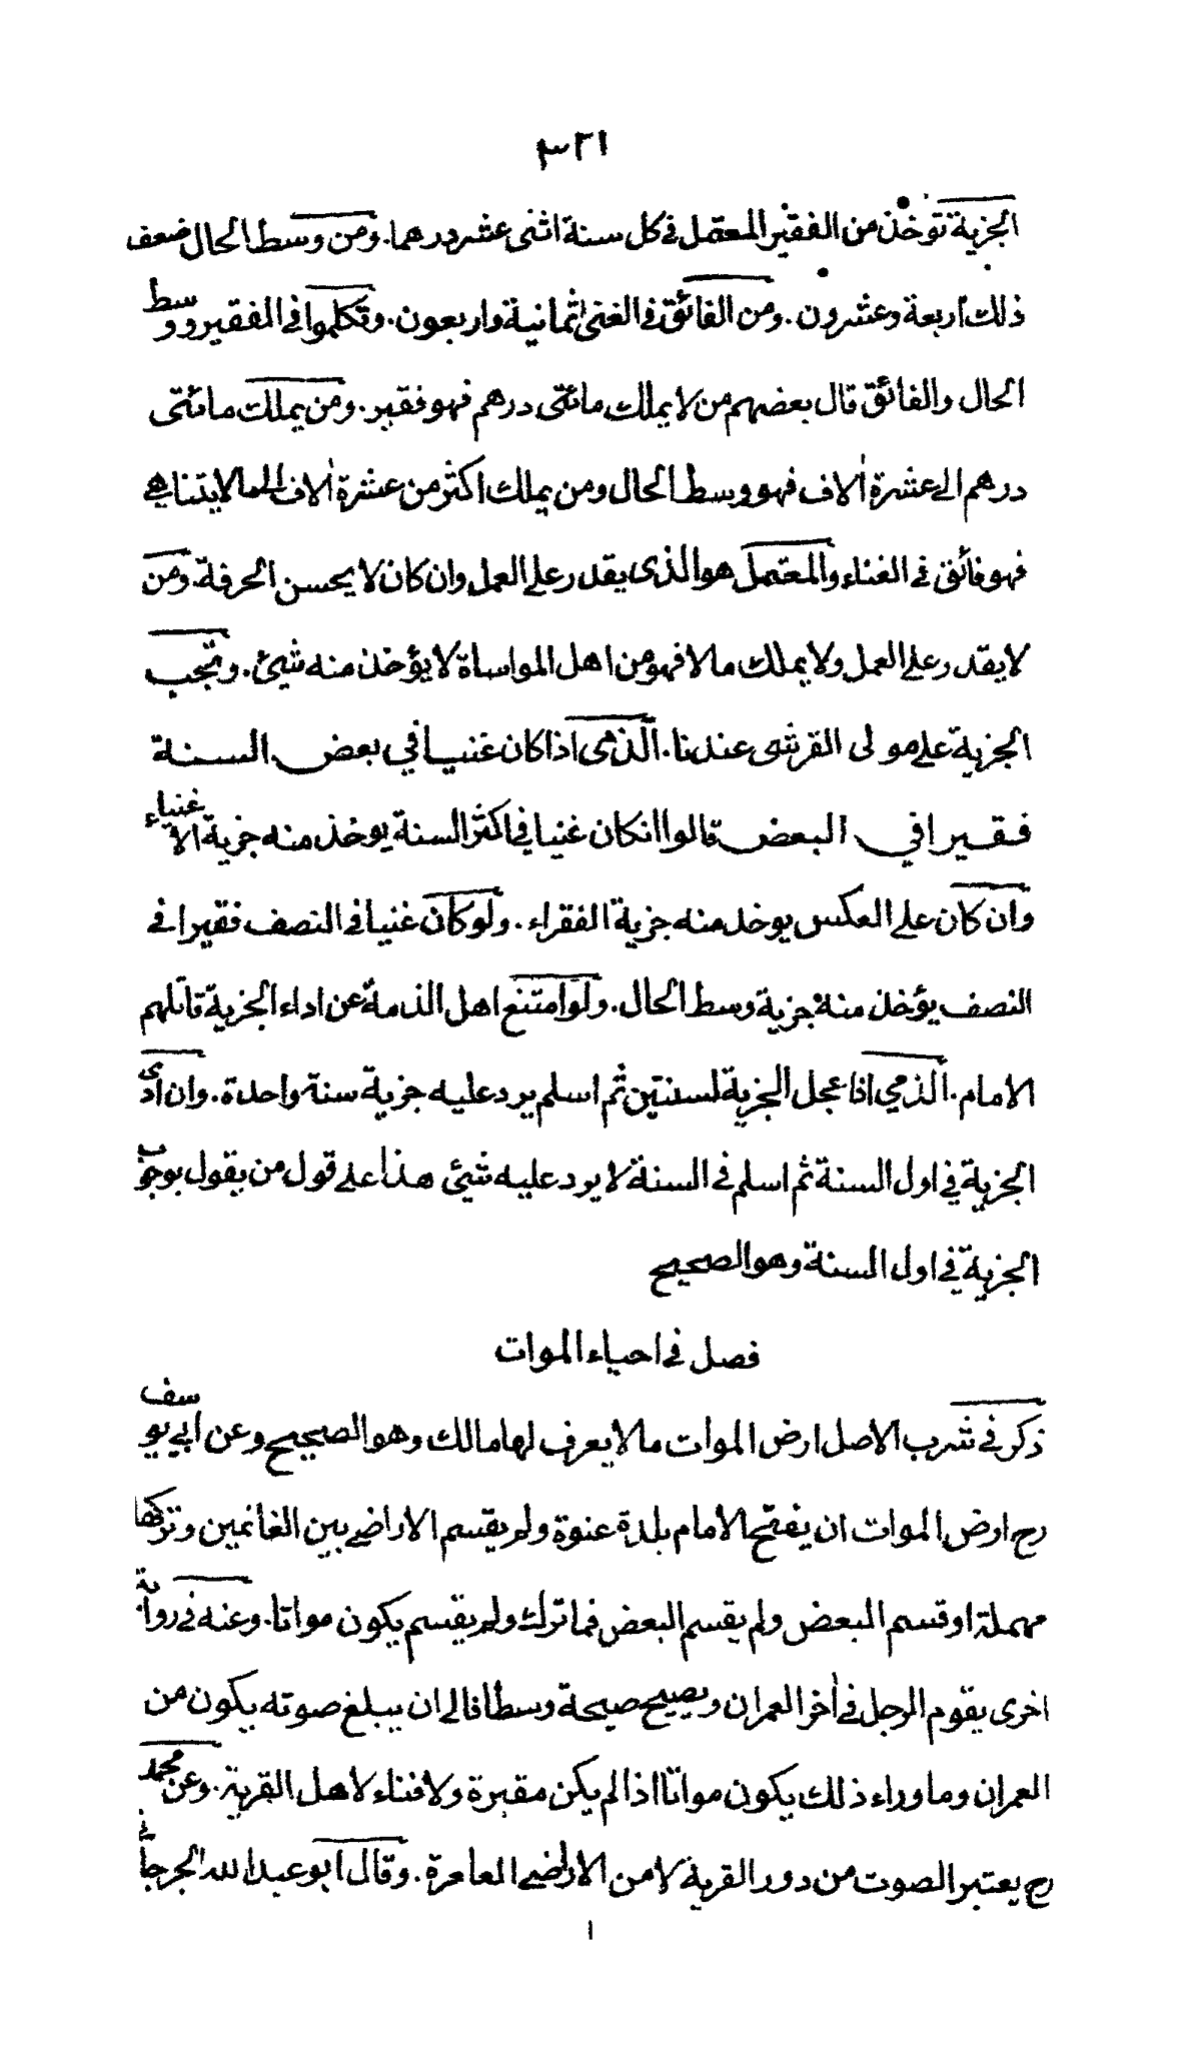 ٣٢١
الجزية توخذ من الفقير المعتمل في كل سنة اثنى عشر درهما. ومن وسط الحال ضعف
ذلك اربعة وعشرون. ومن الفائق في الغنى ثمانية واربعون. وتكلموا في الفقير ووسط
الحال والفائق قال بعضهم من لا يملك مائتى درهم فهو فقير. ومن يملك مائتى
درهم الى عشرة الاف فهو وسط الحال ومن يملك اكثر من عشرة الاف الى ما لا يتناهى
فهو فائق في الغناء والمعتمل هو الذى يقدر على العمل وان كان لا يحسن الحرفة. ومن
لا يقدر على العمل ولا يملك مالا فهو من اهل المواساة لا يؤخذ منه شيئ. وتجب
الجزية على مولى القرشى عندنا. الذمى اذا كان غنيا في بعض السنة
فقيرا في البعض قالوا انكان غنيا في اكثر السنة يوخذ منه جزية الاغنياء
وان كان على العكس يوخذ منه جزية الفقراء. ولو كان غنيا في النصف فقيرا في
النصف يؤخذ منه جزية وسط الحال. ولو امتنع اهل الذمة عن اداء الجزية قاتلهم
الامام. الذمي اذا عجل الجزية لسنتين ثم اسلم يرد عليه جزية سنة واحدة. وان ادى
الجزية في اول السنة ثم اسلم في السنة لا يرد عليه شيئ هذا على قول من يقول بوجوب
الجزية في اول السنة وهو الصحيح
فصل في احياء الموات
ذكر في شرب الاصل ارض الموات ما لا يعرف لها مالك وهو الصحيح وعن ابي يوسف
رح ارض الموات ان يفتح الامام بلدة عنوة ولم يقسم الاراضى بين الغانمين وتركها
مهملة او قسم البعض ولم يقسم البعض فما ترك ولم يقسم يكون مواتا. وعنه في رواية
اخرى يقوم الرجل في اخر العمران ويصيح صيحة وسطا فالى ان يبلغ صوته يكون من
العمران وما وراء ذلك يكون مواتا اذا لم يكن مقبرة ولا فناء لاهل القرية. وعن محمد
رح يعتبر الصوت من دور القرية لا من الاراضي العامرة. وقال ابو عبد الله الجرجاني
ا